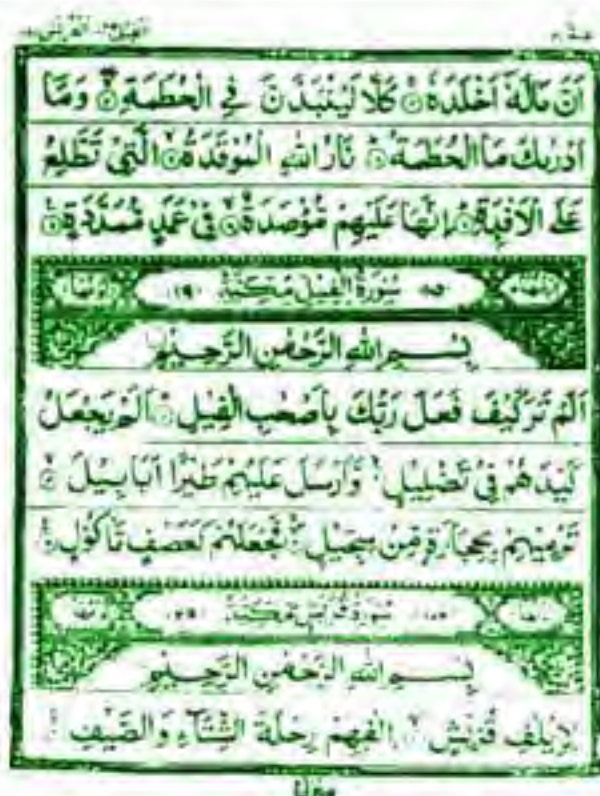 الفيل ١٠٥ قريش ١٠٦
عم ٣٠
اَنَّ مَالَهٗۤ اَخْلَدَهٗ ۚ كَلَّا لَيُنْۢبَذَنَّ فِي الْحُطَمَةِ ۖ وَمَاۤ
اَدْرٰىكَ مَا الْحُطَمَةُ ؕ نَارُ اللّٰهِ الْمُوْقَدَةُ ۙ الَّتِيْ تَطَّلِعُ
عَلَى الْاَفْـِٕدَةِ ؕ اِنَّهَا عَلَيْهِمْ مُّؤْصَدَةٌ ۙ فِيْ عَمَدٍ مُّمَدَّدَةٍ
سُوْرَةُ الْفِيْلِ مَكِّيَّةٌ
بِسْمِ اللّٰهِ الرَّحْمٰنِ الرَّحِيْمِ
اَلَمْ تَرَ كَيْفَ فَعَلَ رَبُّكَ بِاَصْحٰبِ الْفِيْلِ ؕ اَلَمْ يَجْعَلْ
كَيْدَهُمْ فِيْ تَضْلِيْلٍ ۙ وَّاَرْسَلَ عَلَيْهِمْ طَيْرًا اَبَابِيْلَ ۙ
تَرْمِيْهِمْ بِحِجَارَةٍ مِّنْ سِجِّيْلٍ ۙ فَجَعَلَهُمْ كَعَصْفٍ مَّاْكُوْلٍ
سُوْرَةُ قُرَيْشٍ مَكِّيَّةٌ
بِسْمِ اللّٰهِ الرَّحْمٰنِ الرَّحِيْمِ
لِاِيْلٰفِ قُرَيْشٍ ۙ اٖلٰفِهِمْ رِحْلَةَ الشِّتَآءِ وَالصَّيْفِ